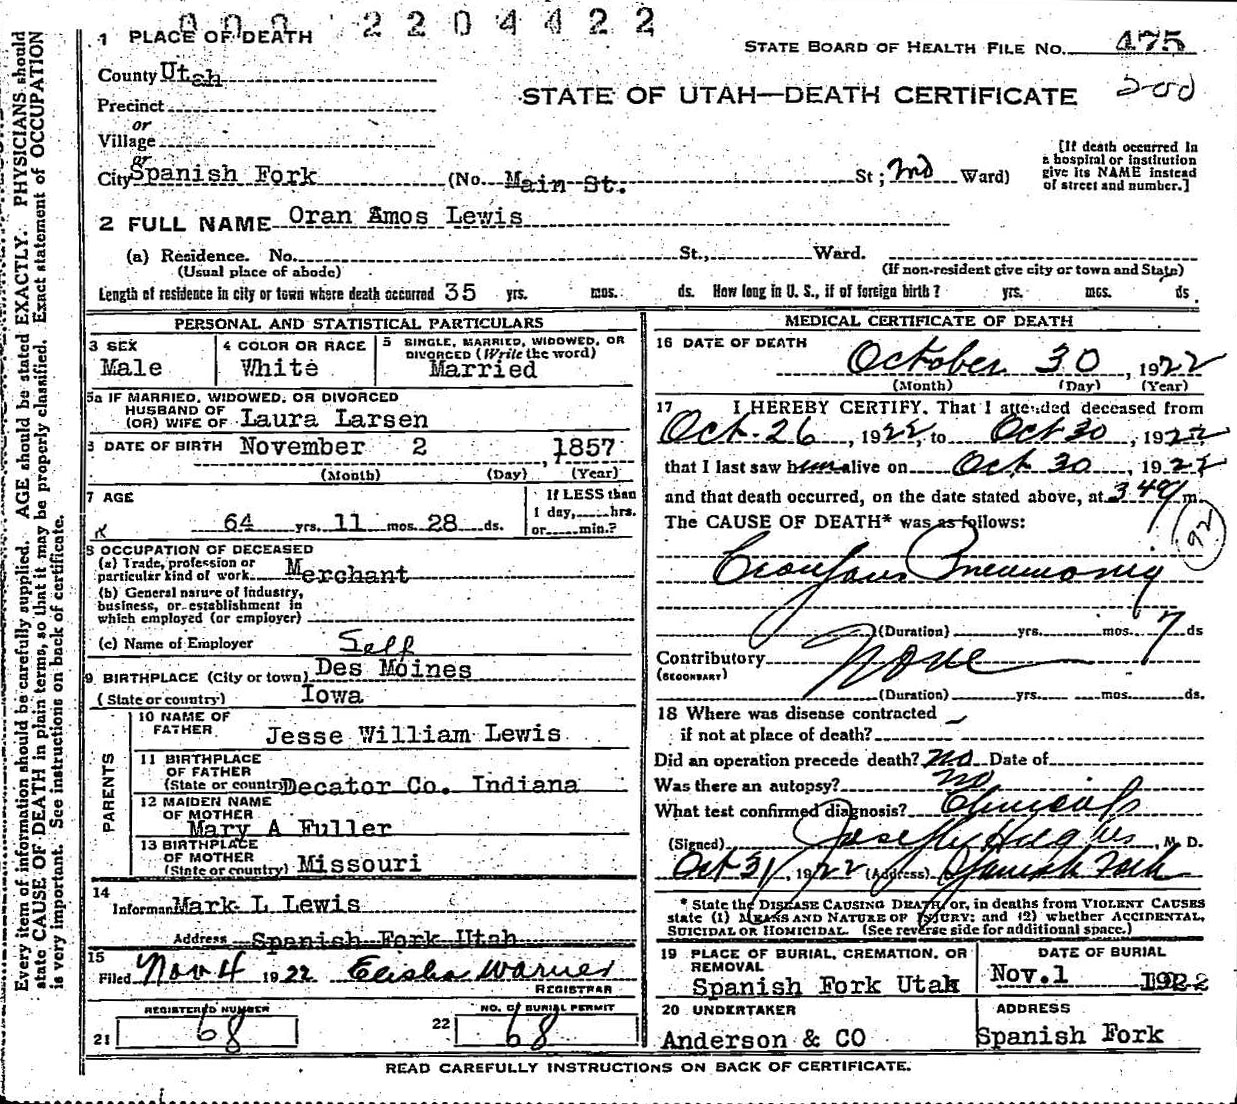 000 2204422
1 PLACE OF DEATH
STATE BOARD OF HEALTH FILE NO. 475
County Utah
200
STATE OF UTAH—DEATH CERTIFICATE
Precinct
or
Village
or
City Spanish Fork (No. Main St. St; 2nd Ward)
[If death occurred in
a hospital or institution
give its NAME instead
of street and number.]
2 FULL NAME Oran Amos Lewis
(a) Residence. No. St., Ward.
(Usual place of abode) (If non-resident give city or town and State)
Length of residence in city or town where death occurred 35 yrs. mos. ds. How long in U. S., if of foreign birth? yrs. mos. ds.
PERSONAL AND STATISTICAL PARTICULARS
3 SEX
Male
4 COLOR OR RACE
White
5 SINGLE, MARRIED, WIDOWED, OR
DIVORCED (Write the word)
Married
5a IF MARRIED, WIDOWED, OR DIVORCED
HUSBAND OF
(OR) WIFE OF Laura Larsen
6 DATE OF BIRTH November 2, 1857
(Month) (Day) (Year)
7 AGE
64 yrs. 11 mos. 28 ds.
If LESS than
1 day, hrs.
or min.?
8 OCCUPATION OF DECEASED
(a) Trade, profession or
particular kind of work Merchant
(b) General nature of industry,
business, or establishment in
which employed (or employer)
(c) Name of Employer Self
9 BIRTHPLACE (City or town) Des Moines
(State or country) Iowa
PARENTS
10 NAME OF
FATHER Jesse William Lewis
11 BIRTHPLACE
OF FATHER
(State or country) Decator Co. Indiana
12 MAIDEN NAME
OF MOTHER
Mary A Fuller
13 BIRTHPLACE
OF MOTHER
(State or country) Missouri
14
Informan Mark L Lewis
Address Spanish Fork Utah
15
Filed Nov 4 1922 Elisha Warner
REGISTRAR
REGISTERED NUMBER
21 68
NO. OF BURIAL PERMIT
22 68
MEDICAL CERTIFICATE OF DEATH
16 DATE OF DEATH
October 30, 1922
(Month) (Day) (Year)
17 I HEREBY CERTIFY, That I attended deceased from
Oct. 26, 1922, to Oct 30, 1922
that I last saw him alive on Oct 30, 1922
and that death occurred, on the date stated above, at 3 49 m.
The CAUSE OF DEATH* was as follows:
92
Croupous Pneumonia
(Duration) yrs. mos. 7 ds
Contributory None
(SECONDARY)
(Duration) yrs. mos. ds.
18 Where was disease contracted
if not at place of death?
Did an operation precede death? no Date of
Was there an autopsy? no
What test confirmed diagnosis?
(Signed) Joseph Hughes, M. D.
Oct 31, 1922 (Address) Spanish Fork
* State the DISEASE CAUSING DEATH, or, in deaths from VIOLENT CAUSES
state (1) MEANS AND NATURE OF INJURY; and (2) whether ACCIDENTAL,
SUICIDAL OR HOMICIDAL. (See reverse side for additional space.)
19 PLACE OF BURIAL, CREMATION, OR
REMOVAL
Spanish Fork Utah
DATE OF BURIAL
Nov.1 1922
20 UNDERTAKER
Anderson & CO
ADDRESS
Spanish Fork
READ CAREFULLY INSTRUCTIONS ON BACK OF CERTIFICATE.
Every item of information should be carefully supplied. AGE should be stated EXACTLY. PHYSICIANS should
state CAUSE OF DEATH in plain terms, so that it may be properly classified. Exact statement of OCCUPATION
is very important. See instructions on back of certificate.